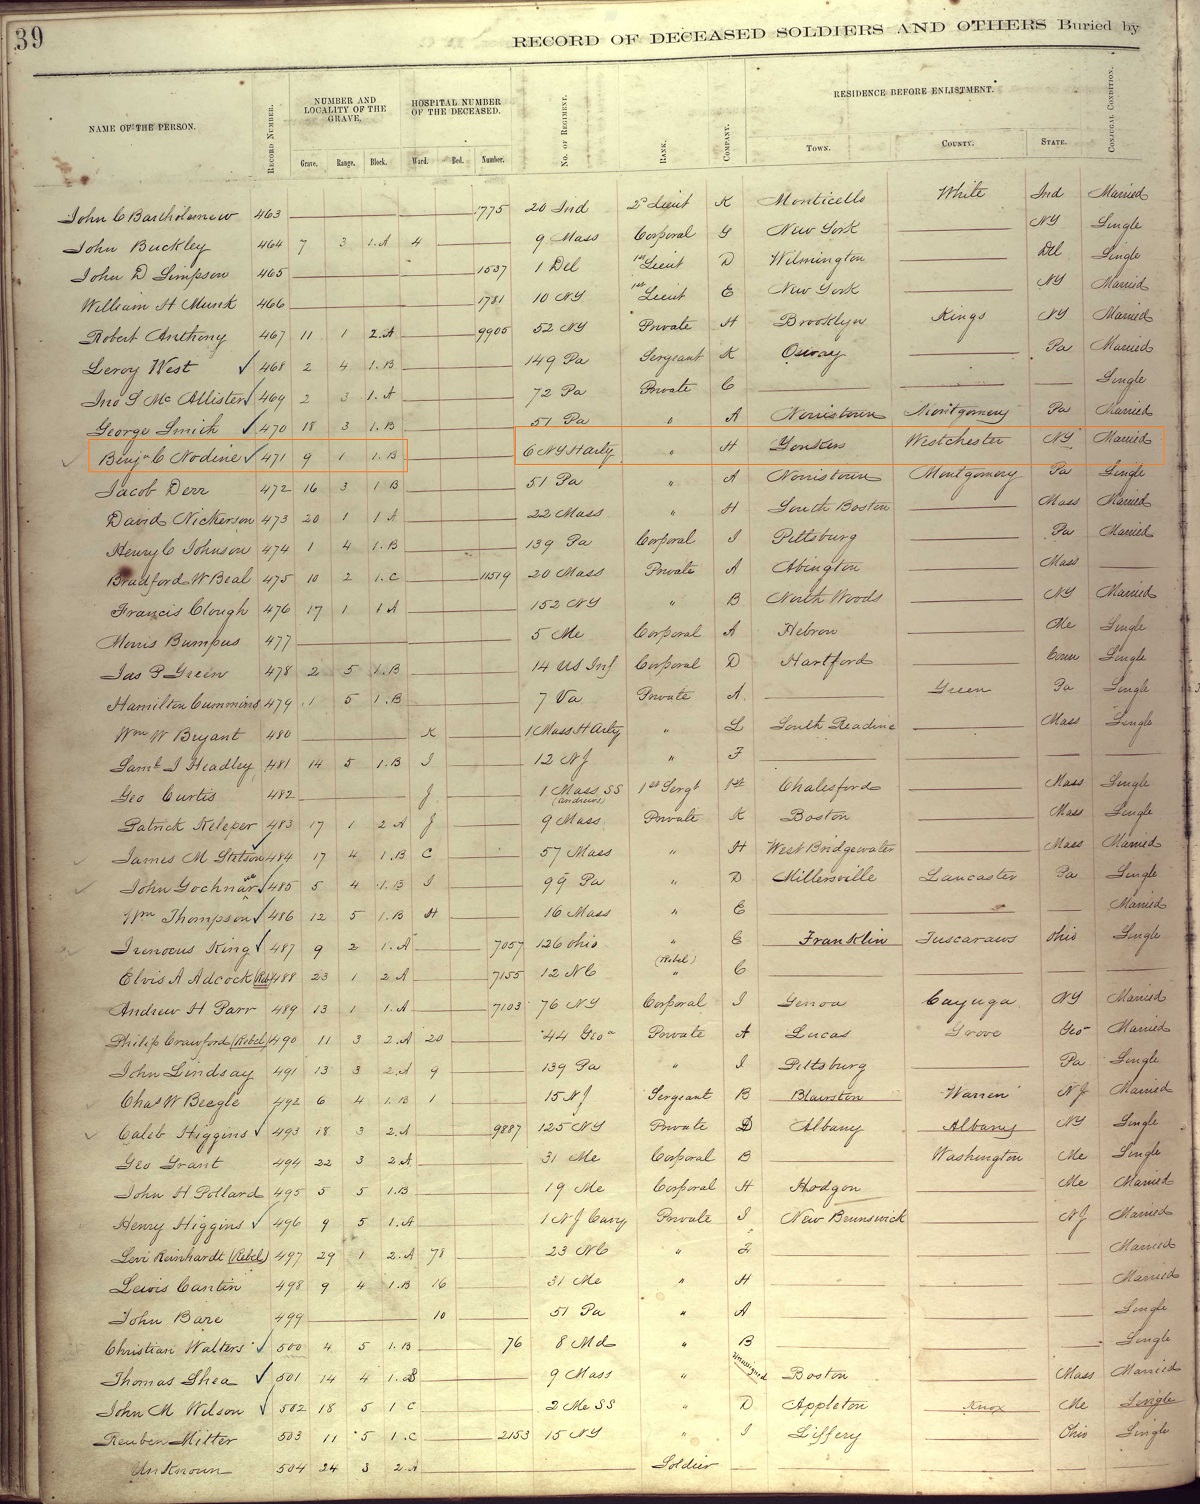 39
RECORD OF DECEASED SOLDIERS AND OTHERS Buried by
NAME OF THE PERSON. RECORD NUMBER. NUMBER AND LOCALITY OF THE GRAVE. HOSPITAL NUMBER OF THE DECEASED. No. OF REGIMENT. RANK. COMPANY. RESIDENCE BEFORE ENLISTMENT. CONJUGAL CONDITION.
Grave. Range. Block. Ward. Bed. Number. TOWN. COUNTY. STATE.
John C Bartholomew 463 1775 20 Ind 2d Lieut K Monticello White Ind Married
John Buckley 464 7 3 1.A 4 9 Mass Corporal G New York NY Single
John D Simpson 465 1537 1 Del 1st Lieut D Wilmington Del Single
William H Munk 466 1781 10 NY 1st Lieut E New York NY Married
Robert Anthony 467 11 1 2.A 9905 52 NY Private H Brooklyn Kings NY Married
Leroy West 468 2 4 1.B 149 Pa Sergeant K Pa Married
Jno S McAllister 469 2 3 1.A 72 Pa Private C Single
George Smith 470 18 3 1.B 51 Pa " A Norristown Montgomery Pa Married
Benjn C Nodine 471 9 1 1.B 6 NY H Arty " H Yonkers Westchester NY Married
Jacob Derr 472 16 3 1 B 51 Pa " A Norristown Montgomery Pa Single
David Nickerson 473 20 1 1 A 22 Mass " H South Boston Mass Married
Henry C Johnson 474 1 4 1.B 139 Pa Corporal I Pittsburg Pa Married
Bradford W Beal 475 10 2 1.C 11519 20 Mass Private A Abington Mass
Francis Clough 476 17 1 1 A 152 NY " B North Woods NY Married
Morris Bumpus 477 5 Me Corporal A Hebron Me Single
Jas P Green 478 2 5 1.B 14 US Inf Corporal D Hartford Conn Single
Hamilton Cummins 479 1 5 1.B 7 Va Private A. Green Pa Single
Wm W Bryant 480 K 1 Mass H Arty " L South Reading Mass Single
Saml J Headley 481 14 5 1.B I 12 NJ " F
Geo Curtis 482 J 1 Mass SS (Andrews) 1st Sergt 1st Chalesford Mass Single
Patrick Keleper 483 17 1 2 A J 9 Mass Private K Boston Mass Single
James M Stetson 484 17 4 1.B C 57 Mass " H West Bridgewater Mass Married
John Gochnar 485 5 4 1.B I 99 Pa " D Millersville Lancaster Pa Single
Wm Thompson 486 12 5 1.B H 16 Mass " E Married
Irenoeus King 487 9 2 1.A 7057 126 Ohio " E Franklin Tuscaraws Ohio Single
Elvis A Adcock (Reb) 488 23 1 2 A 7155 12 NC (Rebel) " C
Andrew H Parr 489 13 1 1.A 7103 76 NY Corporal I Genoa Cayuga NY Married
Philip Crawford (Rebel) 490 11 3 2.A 20 44 Geoa Private A Lucas Grove Geo Married
John Lindsay 491 13 3 2.A 9 139 Pa " I Pittsburg Pa Single
Chas W Beegle 492 6 4 1.B 1 15 NJ Sergeant B Blairston Warren NJ Married
Caleb Higgins 493 18 3 2.A 9887 125 NY Private D Albany Albany NY Single
Geo Grant 494 22 3 2.A 31 Me Corporal B Washington Me Single
John H Pollard 495 5 5 1.B 19 Me Corporal H Hodgon Me Married
Henry Higgins 496 9 5 1.A 1 NJ Cavy Private I New Brunswick NJ Married
Levi Reinhardt (Rebel) 497 29 1 2.A 78 23 NC " F Married
Lewis Cantin 498 9 4 1.B 16 31 Me " H Married
John Bare 499 10 51 Pa " A Single
Christian Walters 500 4 5 1.B 76 8 Md " B Single
Thomas Shea 501 14 4 1.B 9 Mass " Unassigned Boston Mass Married
John M Wilson 502 18 5 1 C 2 Me SS " D Appleton Knox Me Single
Reuben Mitter 503 11 5 1.C 2153 15 NY " I Liffery Ohio Single
Unknown 504 24 3 2.A Soldier